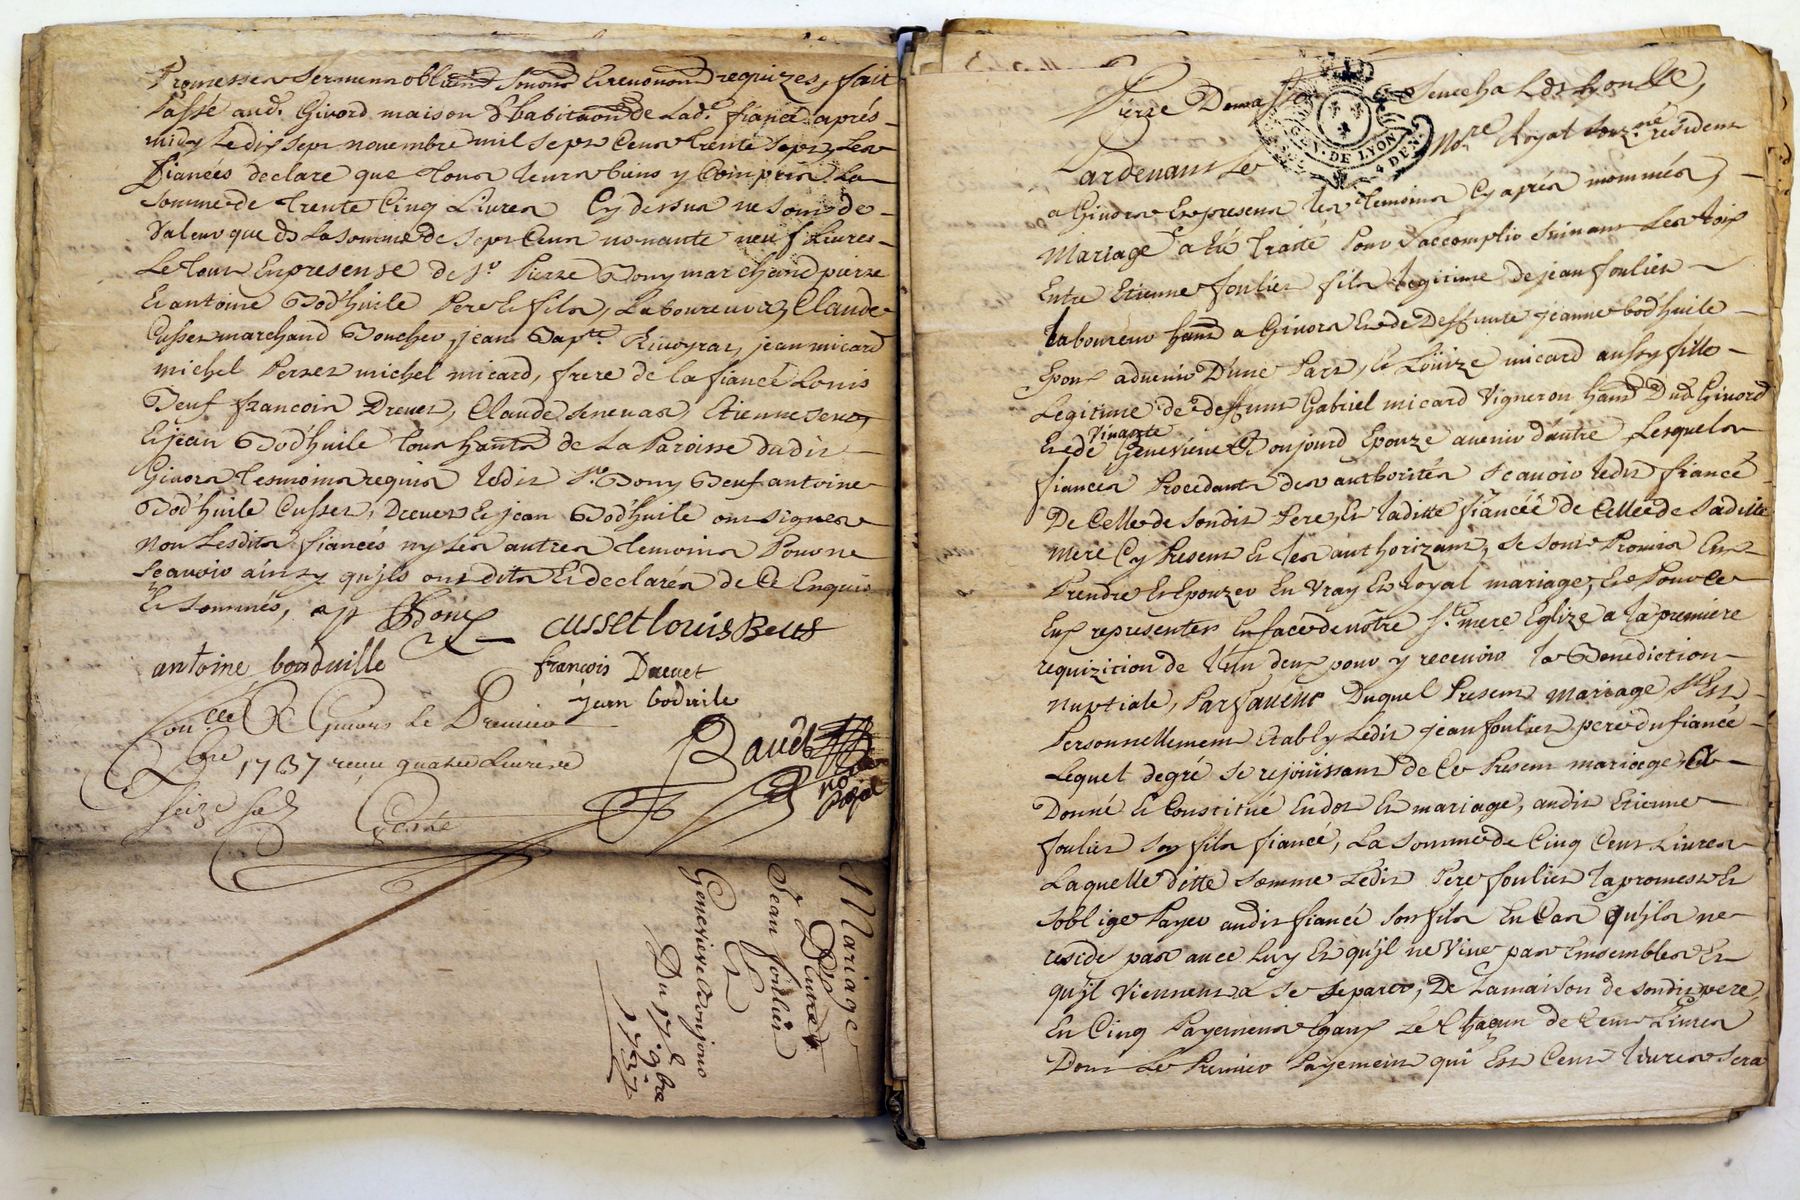 Promesses serment obligé soumis et renoncé requizes, fait
Passé aud. Givord maison d'habitaon de lad. fiancé après
midy le dix sept novembre mil sept cent trente sept, les
fiancés declare que tous leurs biens y compris la
somme de trente cinq livres Cy dessus ne sont de
valeur que de la somme de sept cent nonante neuf livres
Le tout en presense de sr Pierre Bony marchand pierre
et antoine Bod'huile Pere et fils, Laboureurs, Claude
Cusset marchand Boucher, jean Bapte jean micard
michel Perret michel micard, frere de la fiancé Louis
Beuf francois Drevet, Claude senevas, Etienne
et jean Bod'huile tous hants de La Paroisse dudit
Givors tesmoins requis ledit sr Bony Beuf antoine
Bod'huile Cusset, Drevet et jean Bod'huile ont signer
non lesdits fiancés ny les autres temoins Pour ne
scavoir ainsy qu'ils ont dits et declarés de ce enquis
et sommés, app Bony
cusset louis Beuf
antoine bodhuille
francois Drevet
jean boduile
Conllé A Givors Le Premier
Xbre 1737 receu quatre Livres
seize sols
Bauds
no Royal
Mariage
D'Entre
Sr Jean foulier
Et
Genevieve Bonjour
Du 17e 9bre
1737
Pierre Denis Senechal de Lyon
GEN. DE LYON 4 DEN.
Pardevant Le Nore Royal souzné résident
a Givors et present les temoins Cy après nommés,
Mariage a été traité Pour s'accomplir suivant Les loix
Entre Etienne foulier fils legitime de jean foulier
laboureur hant a Givors et de Deffunte jeanne bod'huile
Epoux advenir D'une Part, et Loüize micard aussy fille
Legitime de deffunt Gabriel micard vigneron hant Dud Givord
vivante
et de Genevieve Bonjourd Epouze avenir d'autre Lesquels
fiancés Procedants des authorités Scavoir ledit fiancé
De Celle de sondit Pere, et laditte fiancéé de Celle de Saditte
mere Cy Present et les authorizant, se sont Promis En
Prendre et Epouzer En vray et loyal mariage, et Pour ce
Eux representer En face de nôtre ste mere Eglize a la premiere
requizition de l'un deux pour y recevoir la Benediction
nuptiale, Par faveur Duquel Present mariage s'est
Personnellement Etably Ledit jean foulier pere du fiancé
Lequel degré se rejoüissant de Ce Present mariage a
Donné et Constitué En dot et mariage, audit Etienne
foulier son fils fiancé, La somme de Cinq Cent Livres
Laquelle ditte somme Ledit Pere foulier la promest et
s'oblige Payer audit fiancé son fils En Cas qu'ils ne
reside pas avec Luy et qu'il ne vive pas Ensembles et
qu'il viennent a se separer, De la maison de sondit pere,
En Cinq Payements Egaux Le Chaqun de Cent Livres
Dont Le Premier Payement qui Est Cent livres sera